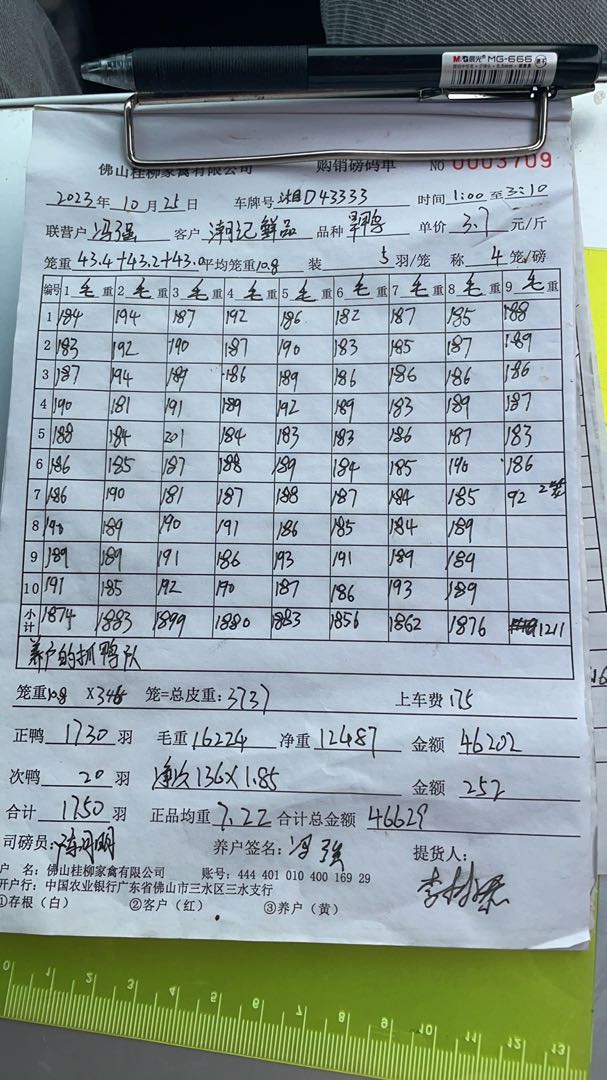 M&G晨光 MG-666
佛山桂柳家禽有限公司 购销磅码单 NO 0003709
2023年 10月 25日 车牌号 湘D43333 时间 1:00 至 3:10
联营户 冯强 客户 潮记鲜品 品种 鸭 单价 3.7 元/斤
笼重 43.4+43.2+43.0 平均笼重 10.8 装 5 羽/笼 称 4 笼/磅
编号 1 毛重 2 毛重 3 毛重 4 毛重 5 毛重 6 毛重 7 毛重 8 毛重 9 毛重
1 184 194 187 192 186 182 187 185 188
2 183 192 190 187 190 183 185 187 189
3 187 194 189 186 189 186 186 186 186
4 190 181 191 189 192 189 183 189 187
5 188 184 201 184 183 183 186 187 183
6 186 185 187 188 189 184 185 190 186
7 186 190 181 187 188 187 184 185 92 2笼
8 190 189 190 191 186 185 184 189
9 189 189 191 186 193 191 189 189
10 191 185 192 190 187 186 193 189
小计 1874 1883 1899 1880 1883 1856 1862 1876 1211
养户的抓鸭队
笼重 10.8 X346 笼=总皮重: 3737 上车费 175
正鸭 1730 羽 毛重 16224 净重 12487 金额 46202
次鸭 20 羽 净次136×1.85 金额 252
合计 1750 羽 正品均重 7.22 合计总金额 46629
司磅员: 养户签名: 冯强 提货人:
户 名: 佛山桂柳家禽有限公司 账号: 444 401 010 400 169 29
开户行: 中国农业银行广东省佛山市三水区三水支行
①存根(白) ②客户(红) ③养户(黄)
0 1 2 3 4 5 6 7 8 9 10 11 12 13